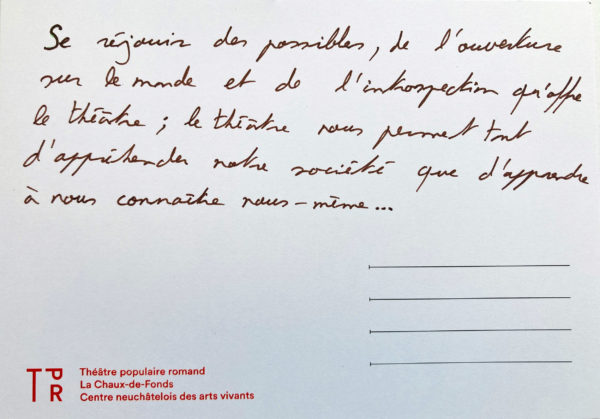 Se réjouir des possibles, de l'ouverture
sur le monde et de l'introspection qu'offre
le théâtre ; le théâtre nous permet tant
d'appréhender notre société que d'apprendre
à nous connaître nous-même...
TPR
Théâtre populaire romand
La Chaux-de-Fonds
Centre neuchâtelois des arts vivants